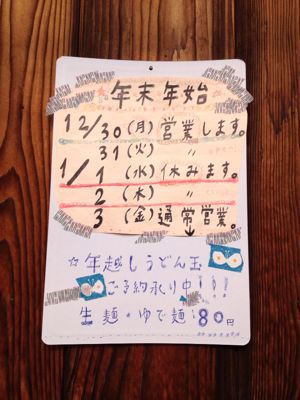 ☆年末年始☆
12/30(月)営業します。
31(火) 〃
1/1(水)休みます。
2(木) 〃
3(金)通常営業。
☆年越しうどん玉
ご予約承り中!!!
生麺・ゆで麺:80円